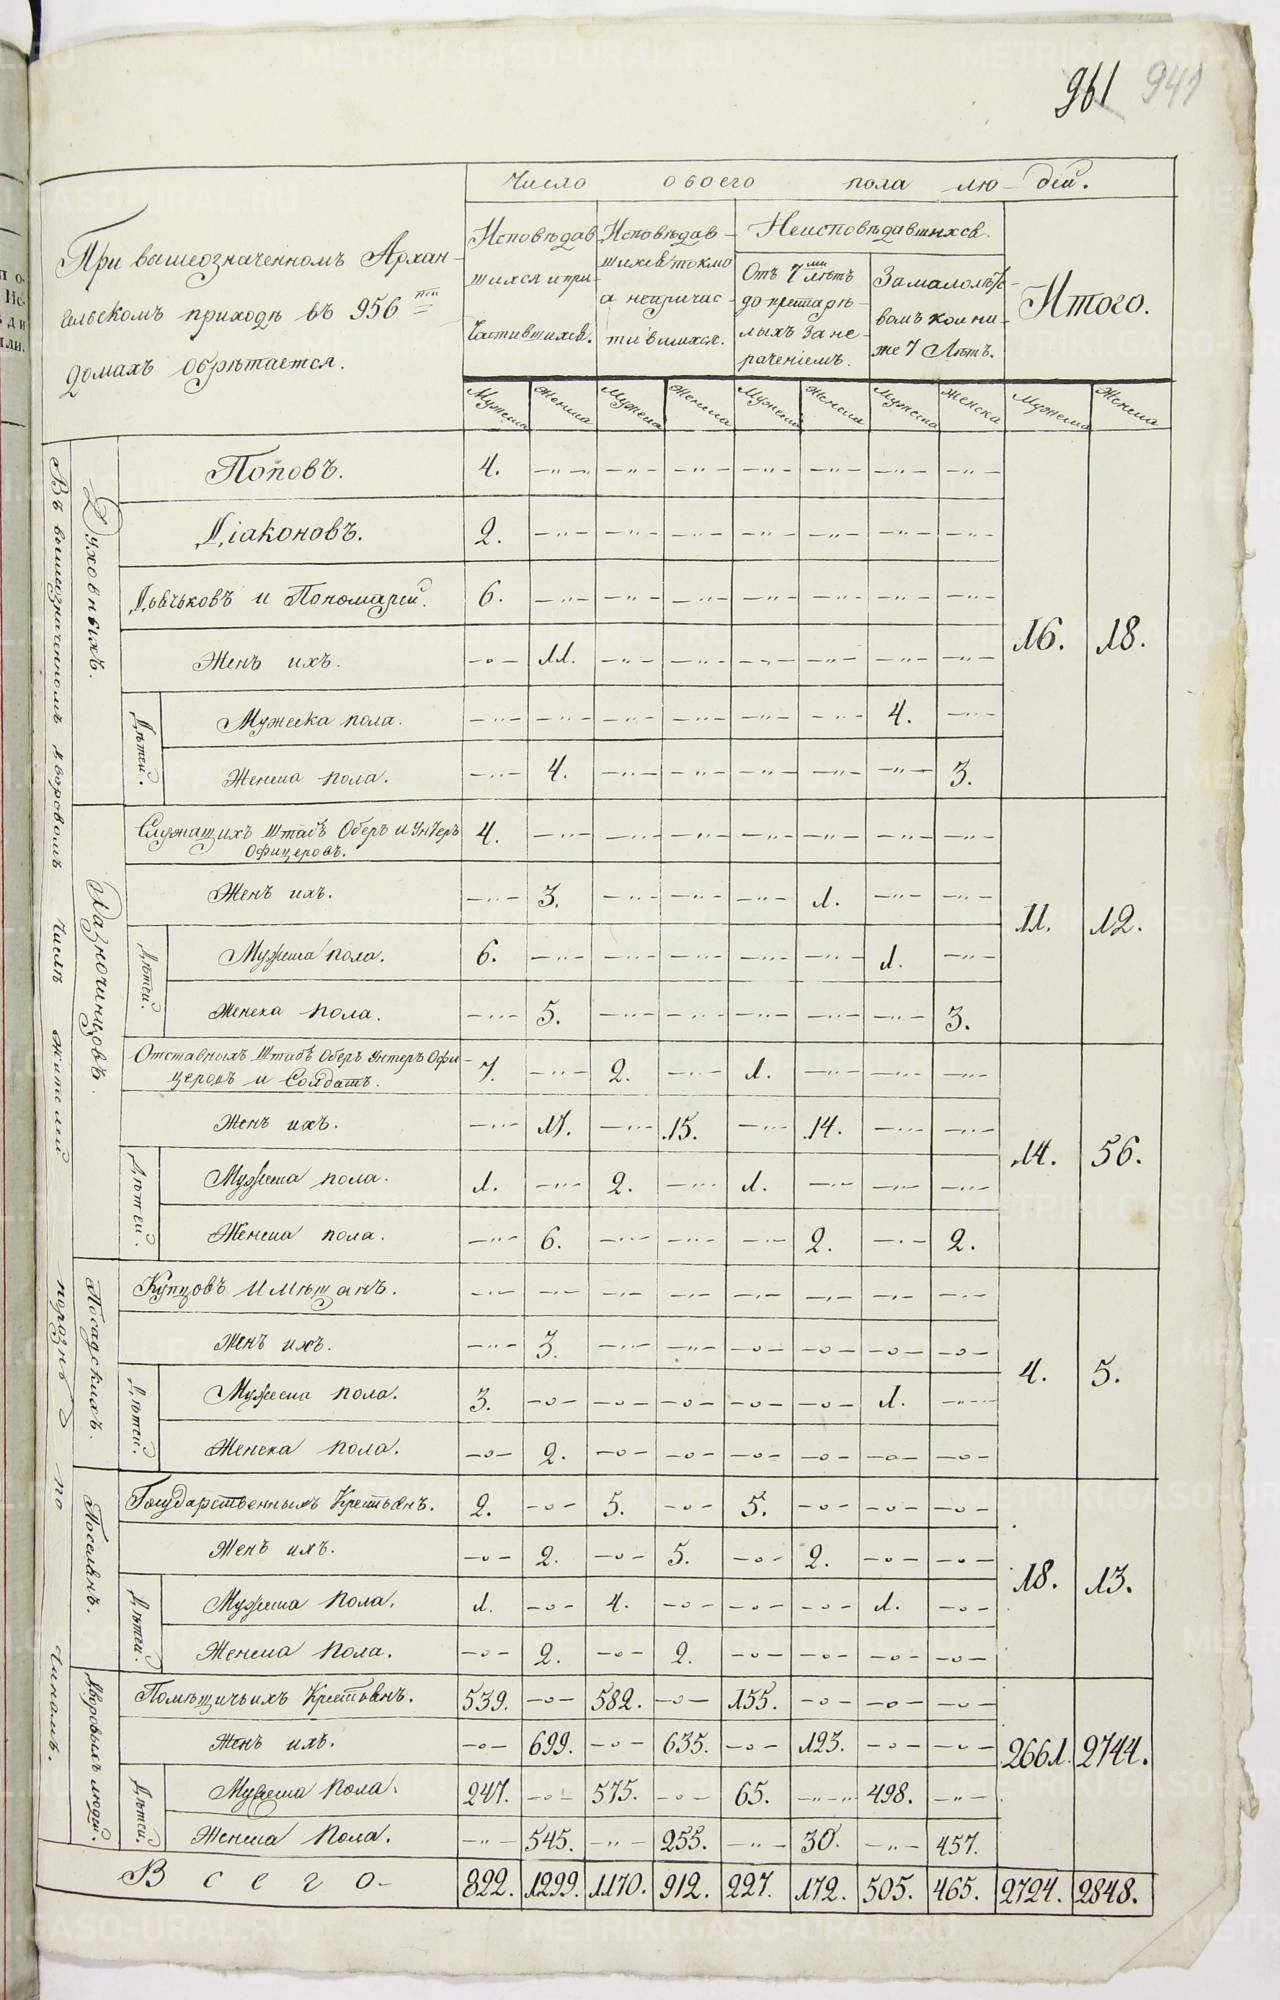 961 941
Число обоего пола людей.
При вышеозначенномъ Архан-
гельскомъ приходѣ въ 956 ти
домахъ обрѣтается.
Исповѣдав
шихся и при-
частившихся.
Исповѣдав-
шихся токмо
а непричас-
тившихся.
Неисповѣдавшихся.
Отъ 7 ми лѣтъ
до престарѣ-
лыхъ за не-
раченіемъ.
За малолѣт-
вомъ кои ни-
же 7 лѣтъ.
Итого.
Мужеска Женска Мужеска Женска Мужеска Женска Мужеска Женска Мужеска Женска
Въ вышеозначенномъ дворовомъ числѣ жителей порознь по чиномъ.
Духовныхъ.
Поповъ. 4. —"— —"— —"— —"— —"— —"— —"—
Діаконовъ. 2. —"— —"— —"— —"— —"— —"— —"—
Дьячьковъ и Пономарей. 6. —"— —"— —"— —"— —"— —"— —"—
Женъ ихъ. —о— 11. —"— —"— —"— —"— —"— —"—
16. 18.
Дѣтей.
Мужеска пола. —"— —"— —"— —"— —"— —"— 4. —"—
Женска пола. —"— 4. —"— —"— —"— —"— —"— 3.
Разночинцовъ
Служащихъ Штабъ Оберъ и Унтеръ
Офицеровъ. 4. —"— —"— —"— —"— —"— —"— —"—
Женъ ихъ. —"— 3. —"— —"— —"— 1. —"— —"—
11. 12.
Дѣтей.
Мужеска пола. 6. —"— —"— —"— —"— —"— 1. —"—
Женска пола. —"— 5. —"— —"— —"— —"— —"— 3.
Отставныхъ Штабъ Оберъ Унтеръ Офи-
церовъ и Солдатъ. 7. —"— 2. —"— 1. —"— —"— —"—
Женъ ихъ. —"— 17. —"— 15. —"— 14. —"— —"—
14. 56.
Дѣтей.
Мужеска пола. 1. —"— 2. —"— 1. —"— —"— —"—
Женска пола. —"— 6. —"— —"— —"— 2. —"— 2.
Посадскихъ.
Купцовъ и мѣщанъ. —"— —"— —"— —"— —"— —"— —"— —"—
Женъ ихъ. —"— 3. —"— —"— —о— —о— —о— —о—
4. 5.
Дѣтей.
Мужеска пола. 3. —о— —о— —о— —о— —о— 1. —"—
Женска пола. —о— 2. —о— —о— —о— —о— —о— —о—
Поселянъ.
Государственныхъ Крестьянъ. 2. —о— 5. —о— 5. —о— —о— —о—
Женъ ихъ. —о— 2. —о— 5. —о— 2. —о— —о—
18. 13.
Дѣтей.
Мужеска пола. 1. —о— 4. —о— —о— —о— 1. —о—
Женска пола. —о— 2. —о— 2. —о— —о— —о— —о—
Дворовыхъ людей.
Помѣщичьихъ Крестьянъ. 539. —о— 582. —о— 155. —о— —о— —о—
Женъ ихъ. —о— 699. —о— 635. —о— 123. —о— —о—
2661. 2744.
Дѣтей.
Мужеска пола. 247. —о— 575. —о— 65. —"— 498. —"—
Женска пола. —"— 545. —"— 255. —"— 30. —"— 457.
Всего— 822. 1299. 1170. 912. 227. 172. 505. 465. 2724. 2848.
METRIKI.GASO-URAL.RU